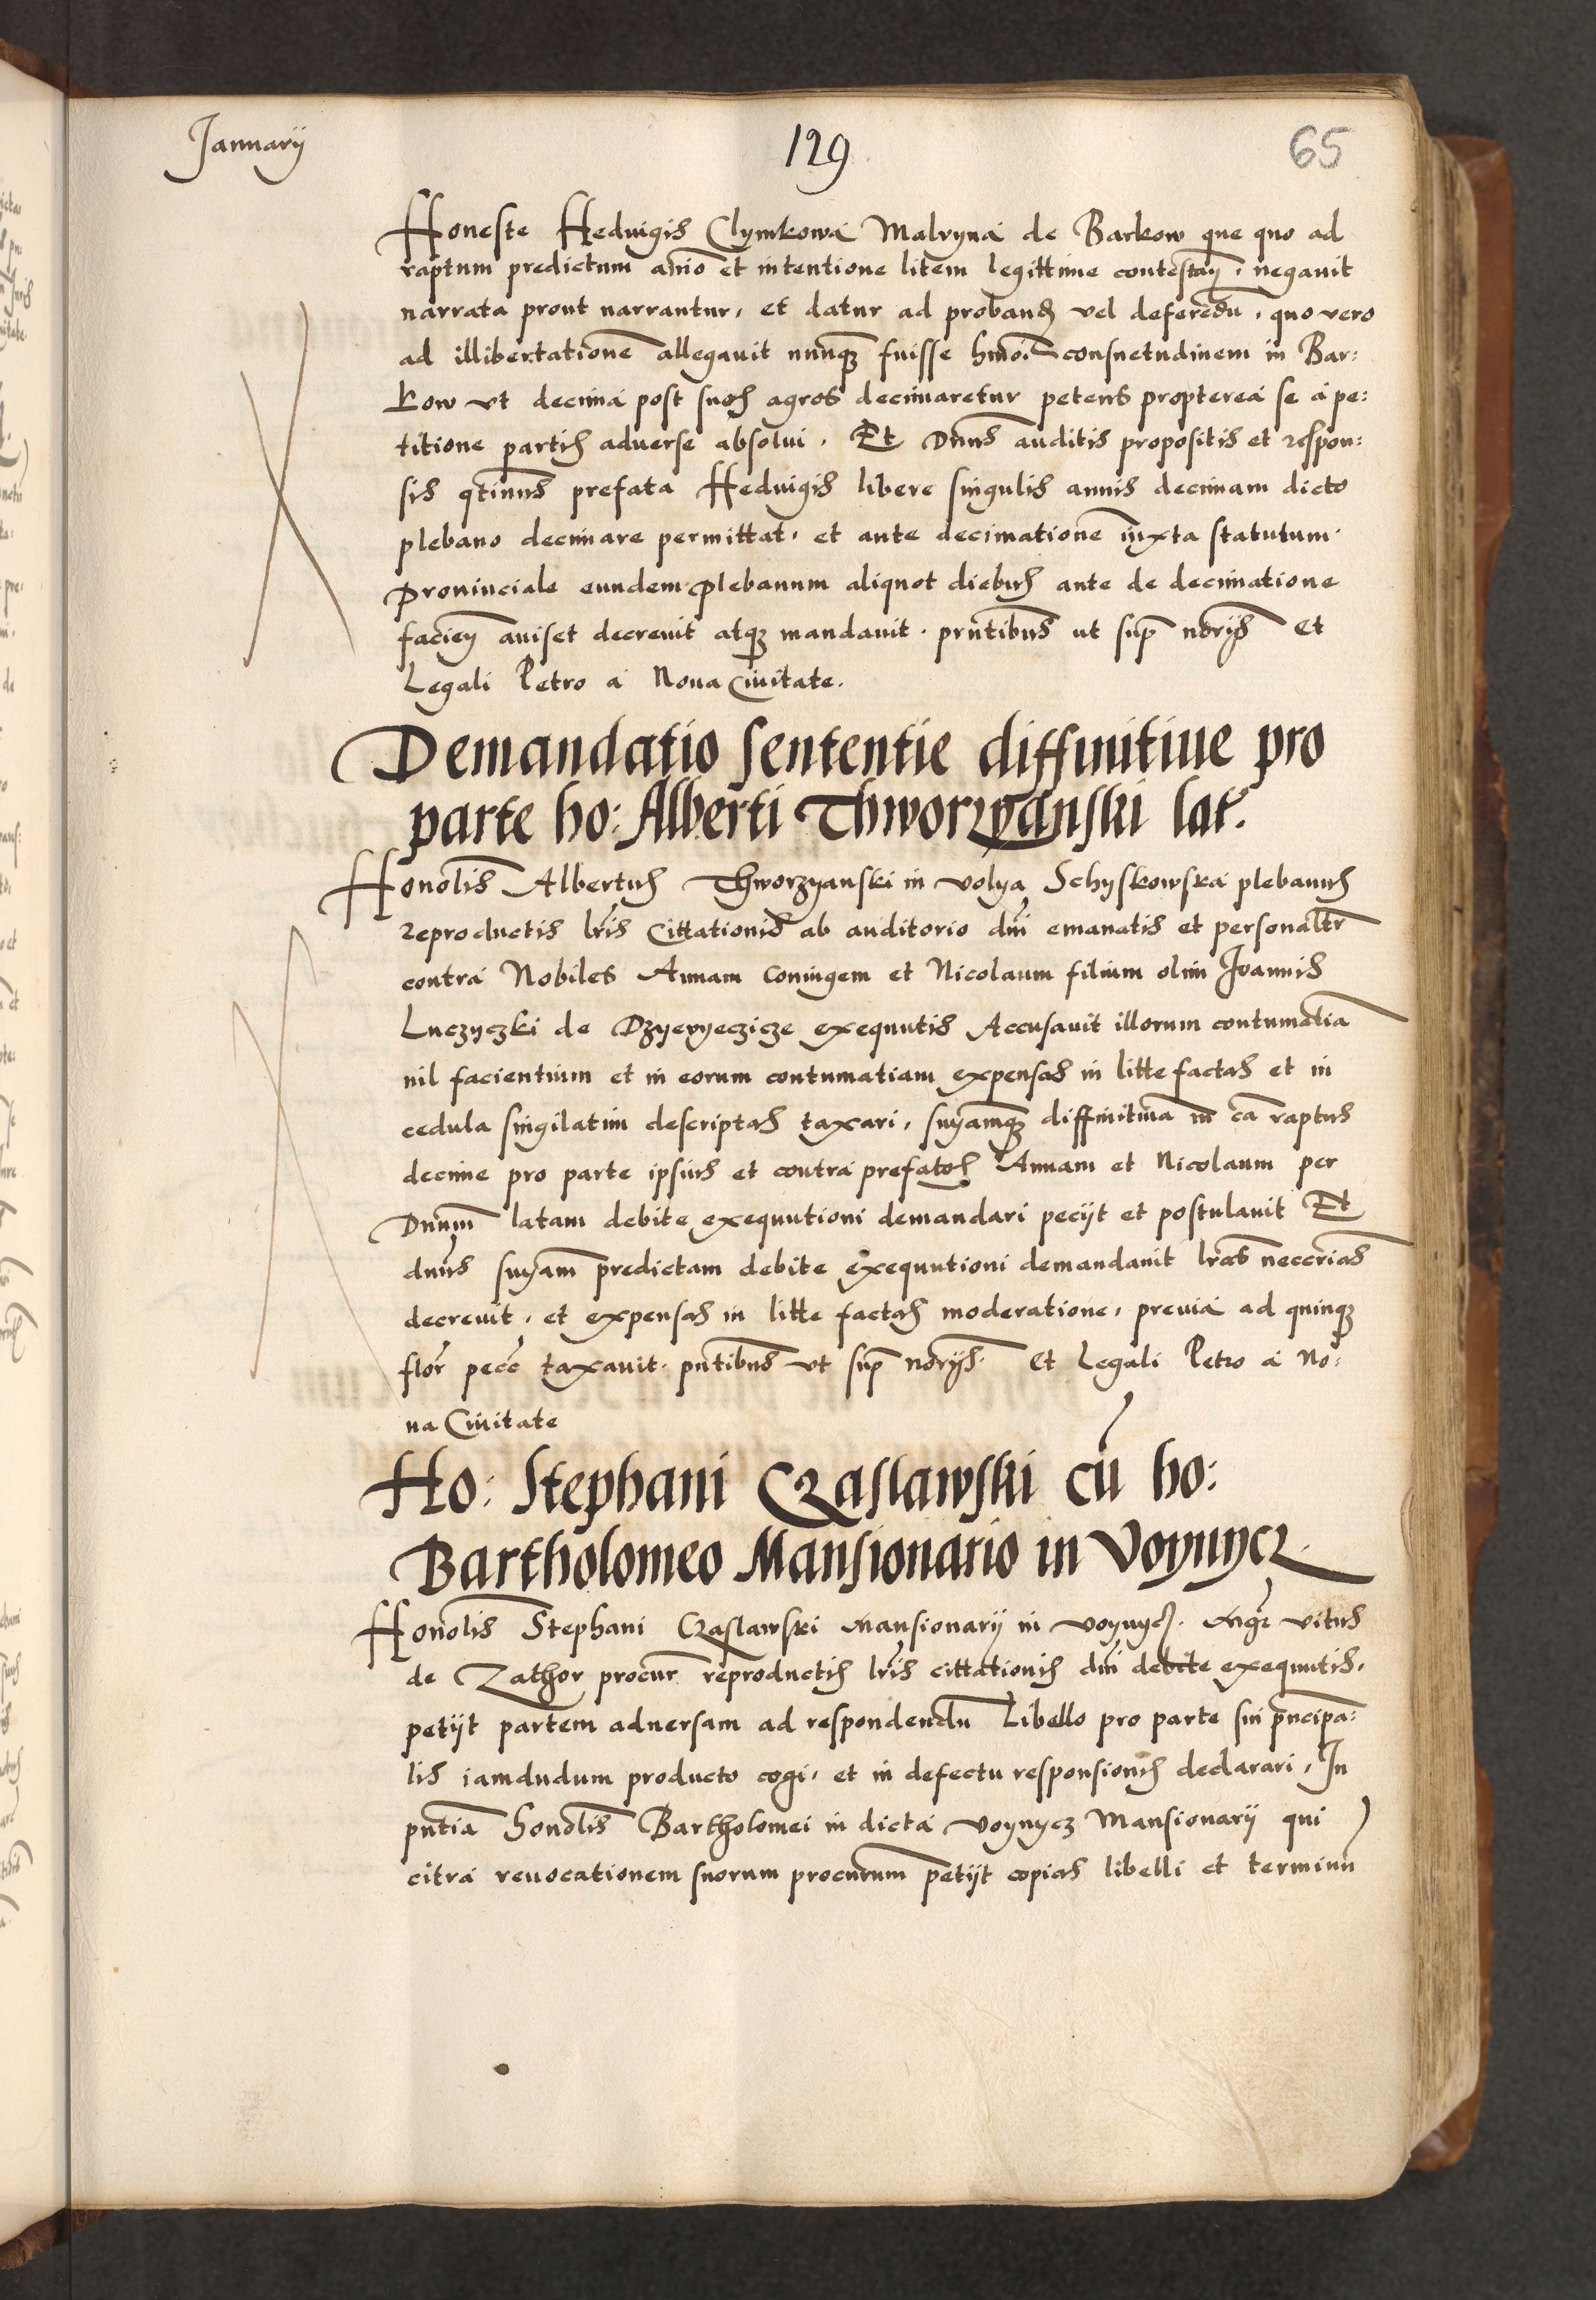 Januarij
129
65
Honeste Hedvigis Clymkowa Malvyna de Barkow que quo ad
raptum predictum anio et intentione litem legittime contestan, negavit
narrata prout narrantur, et datur ad proband vel deferedu, quo vero
ad illibertatione allegavit nunq fuisse hmoi consuetudinem in Bar:
kow ut decima post suos agros decimaretur petens propterea se a pe:
titione partis adverse absolui. Et Dnus auditis propositis et respon:
sis qtinus prefata Hedvigis libere singulis annis decimam dicto
plebano decimare permittat, et ante decimatione iuxta statutum
Provinciale eundem Plebanum aliquot diebus ante de decimatione
facien aviset decrevit atq mandavit. prntibus ut sup noris Et
Legali Petro a Nova Civitate.
Demandatio sententie diffinitiue pro
parte ho: Alberti Thworzyanski lat.
Honolis Albertus Thworzyanski in volya Schyskowska plebanus
reproductis lris Cittationis ab auditorio dni emanatis et personaltr
contra Nobiles Annam Coniugem et Nicolaum filium olim Joannis
Luczyczki de Dzyevyeczicze exequutis Accusavit illorum contumatia
nil facientium et in eorum contumatiam expensas in litte factas et in
cedula singilatim descriptas taxari, snyamq diffinitiva in ca raptus
decime pro parte ipsius et contra prefatos Annam et Nicolaum per
Dnum latam debite exequutioni demandari pecijt et postulavit Et
dnus snyam predictam debite exequutioni demandavit lras neccrias
decrevit, et expensas in litte factas moderatione, previa ad quinq
flor pecc taxavit. pntibus ut sup norijs. Et Legali Petro a No:
va Civitate
Ho: Stephani Czaslawski cu ho:
Bartholomeo Mansionario in Voynycz
Honolis Stephani Czaslawski Mansionarij in voynycz. Mgr vitus
de Zathor procur reproductis lris cittationis dni debite exequutis,
petijt partem adversam ad respondendu Libello pro parte sui pncipa:
lis iamdudum producto cogi, et in defectu responsionis declarari, In
pntia honolis Bartholomei in dicta voynycz Mansionarij qui
citra revocationem suorum procurum petijt copias libelli et terminu